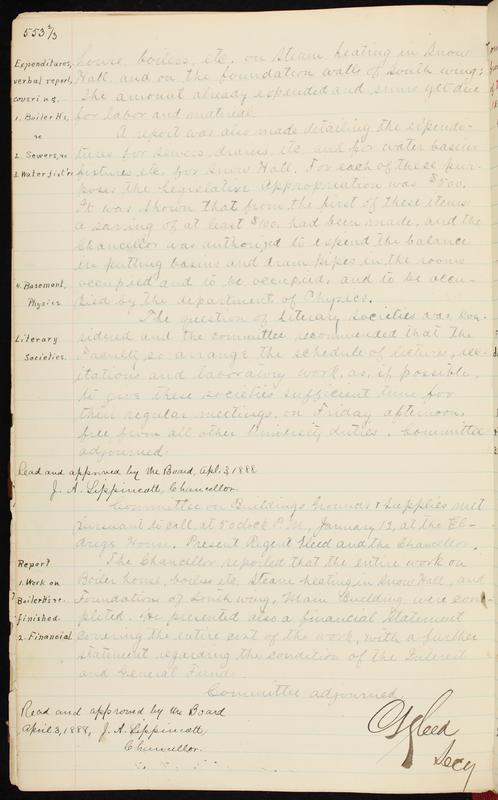 553 2/3
Expenditures,
verbal report,
covering.
1. Boiler Hs,
2. Sewers, &c
3. Water fixt're
house, boilers, etc. on Steam heating in Snow
Hall, and on the foundation walls of South wing;
The amount already expended and sums yet due
for labor and material.
A report was also made detailing the expendi-
tures for sewers, drains, etc. and for water basins
fixtures etc. for Snow Hall. For each of these pur-
poses the Legislative appropriation was $500.
It was shown that from the first of these items
a saving of at least $100. had been made, and the
Chancellor was authorized to expend the balance
in putting basins and drain pipes in the rooms
4. Basement,
Physics
occupied and to be occupied, and to be occu-
pied by the department of Physics.
The question of Literary Societies was con-
Literary
Societies.
sidered and the committee recommended that the
Faculty so arrange the schedule of lectures, rec-
itations and laboratory work, as, if possible,
to give these societies sufficient time for
their regular meetings, on Friday afternoon,
free from all other University duties. Committee
adjourned.
Read and approved by the Board, Apl. 3, 1888
J. A. Lippincott, Chancellor.
Committee on Buildings Grounds & Supplies met
pursuant to call, at 5 oclock P.M., January 12, at the El-
dridge House. Present Regent Gleed and the Chancellor.
Report
1. Work on
Boiler H. &c.
finished.
2. Financial
The Chancellor reported that the entire work on
Boiler house, boilers etc. Steam heating in Snow Hall, and
Foundation of South wing, Main Building were com-
pleted. He presented also a financial Statement
covering the entire cost of the work, with a further
statement regarding the condition of the Interest
and General Funds.
Committee adjourned
Read and approved by the Board
April 3, 1888, J. A. Lippincott,
Chancellor.
C S Gleed
Secy